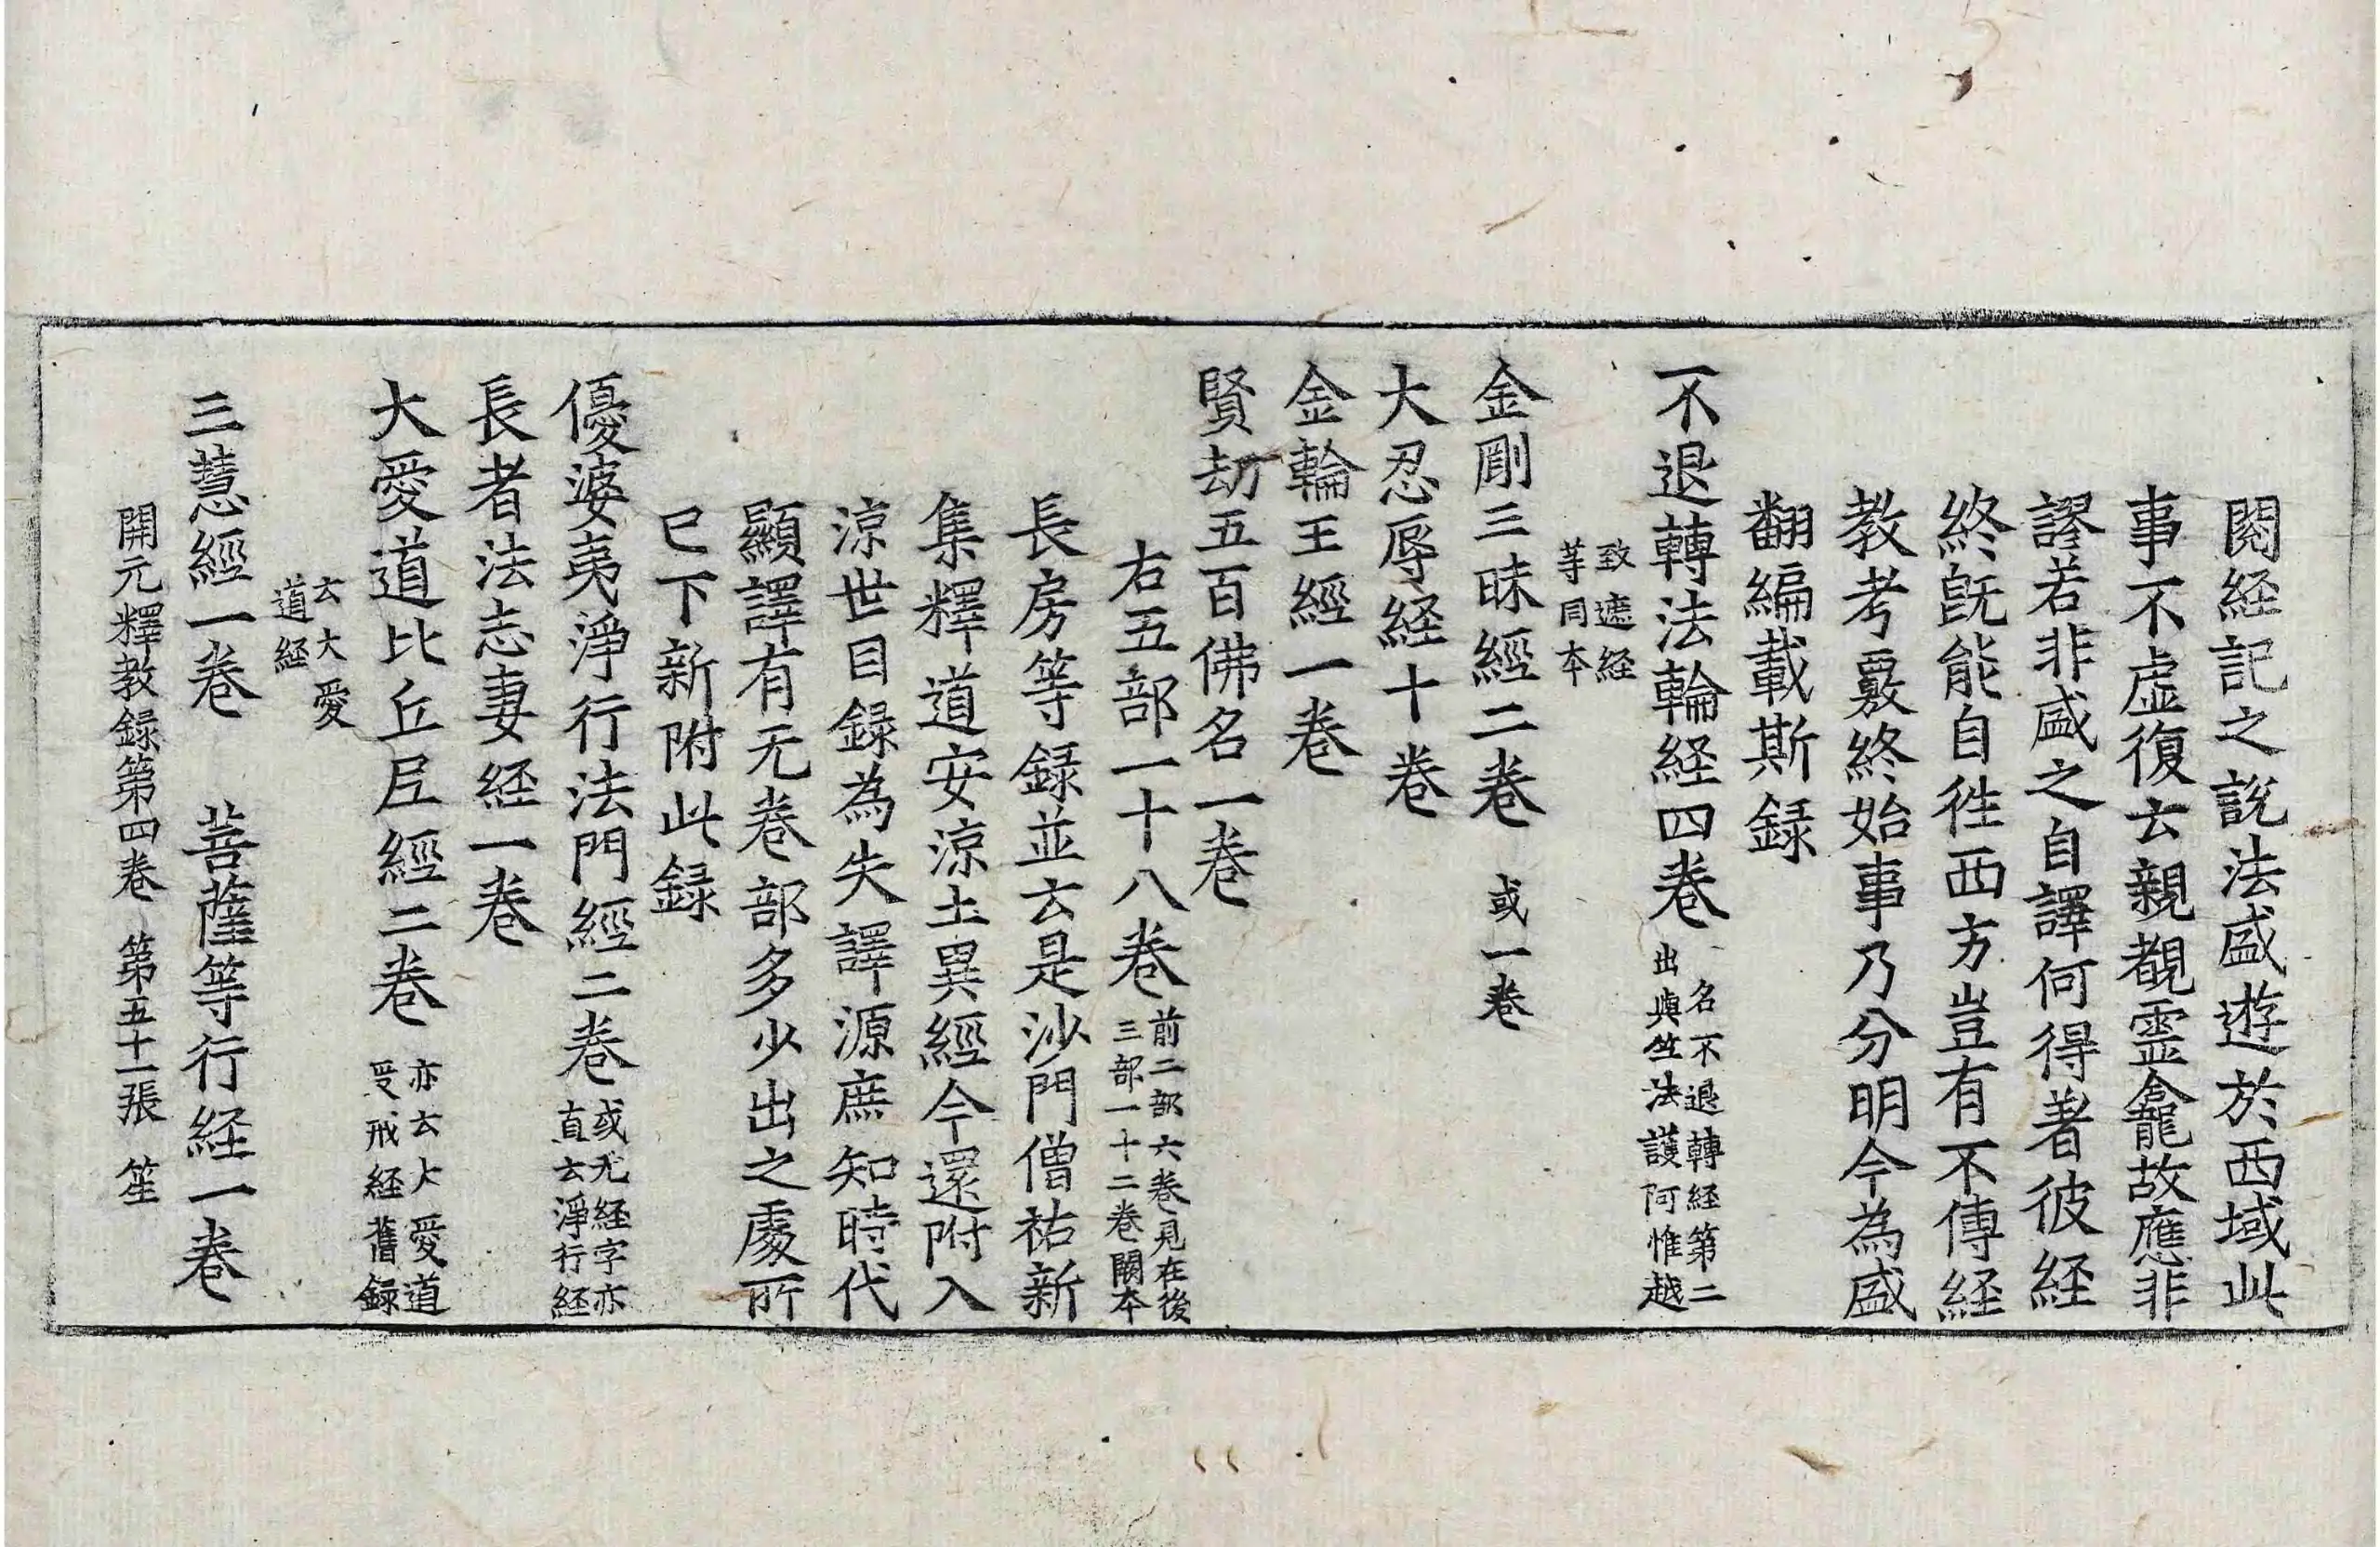 閱経記之說法盛遊於西域此
事不虛復云親覩靈龕故應非
謬若非盛之自譯何得著彼経
終既能自徃西方豈有不傳経
教考覈終始事乃分明今為盛
翻編載斯録
不退轉法輪経四卷 名不退轉経第二
出與竺法護阿惟越
致遮経
等同本
金剛三昧經二卷 或一卷
大忍辱経十卷
金輪王經一卷
賢劫五百佛名一卷
右五部一十八卷 前二部六卷見在後
三部一十二卷闕本
長房等録並云是沙門僧祐新
集釋道安涼土異經今還附入
涼世目録為失譯源庶知時代
顯譯有无卷部多少出之處所
已下新附此録
優婆夷淨行法門經二卷 或无経字亦
直云淨行経
長者法志妻経一卷
大愛道比丘尼經二卷 亦云大愛道
受戒経舊録
云大愛
道経
三慧經一卷 菩薩等行経一卷
開元釋教録第四卷 第五十一張 笙